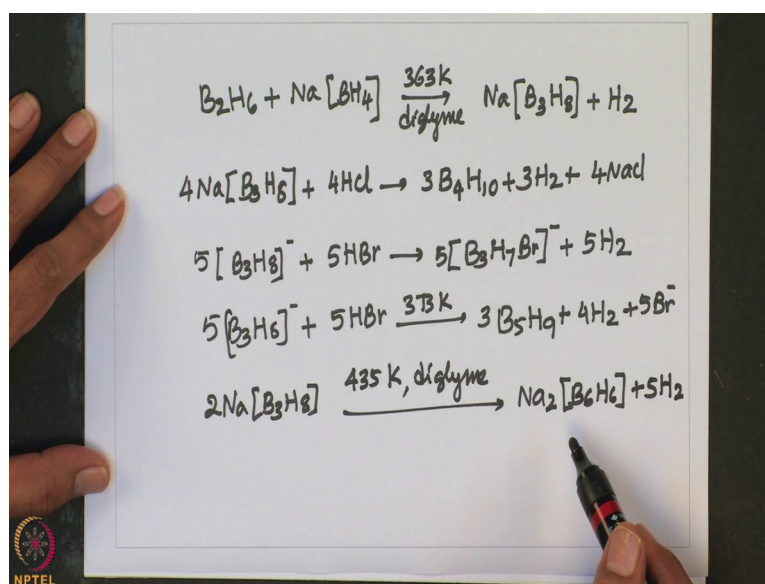 B2H6 + Na[BH4] 363K diglyme → Na[B3H8] + H2
4Na[B3H8] + 4HCl → 3B4H10 + 3H2 + 4NaCl
5[B3H8]⁻ + 5HBr → 5[B3H7Br]⁻ + 5H2
5[B3H6]⁻ + 5HBr 373K → 3B5H9 + 4H2 + 5Br⁻
2Na[B3H8] 435 K, diglyme → Na2[B6H6] + 5H2
NPTEL